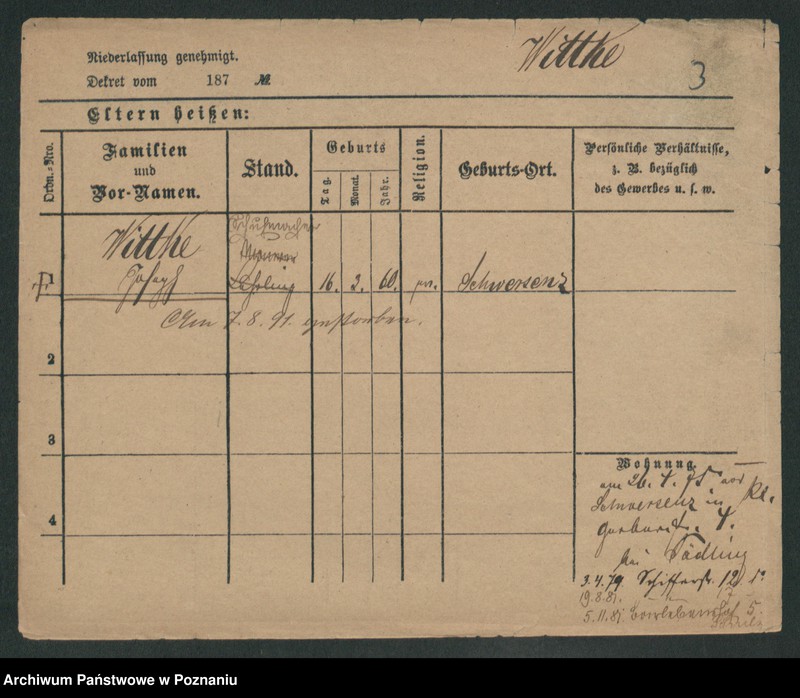 Wittke
3
Niederlassung genehmigt.
Dekret vom 187 №
Eltern heißen:
Ordn.=Nro.
Familien
und
Vor-Namen.
Stand.
Geburts
Tag.
Monat.
Jahr.
Religion.
Geburts-Ort.
Persönliche Verhältnisse,
z. B. bezüglich
des Gewerbes u. s. w.
Schuhmacher
Wittke
Joseph
Lehrling
1
16. 2. 60.
Schwersenz
Am 7. 8. 91 gestorben.
2
3
4
Wohnung.
am 26. 4. 75 aus
Schwersenz in Kl.
Gerberstr. 4.
bei Tädling
3.4.79 Schifferstr. 12
19.8.81.
5.11.81.
5.